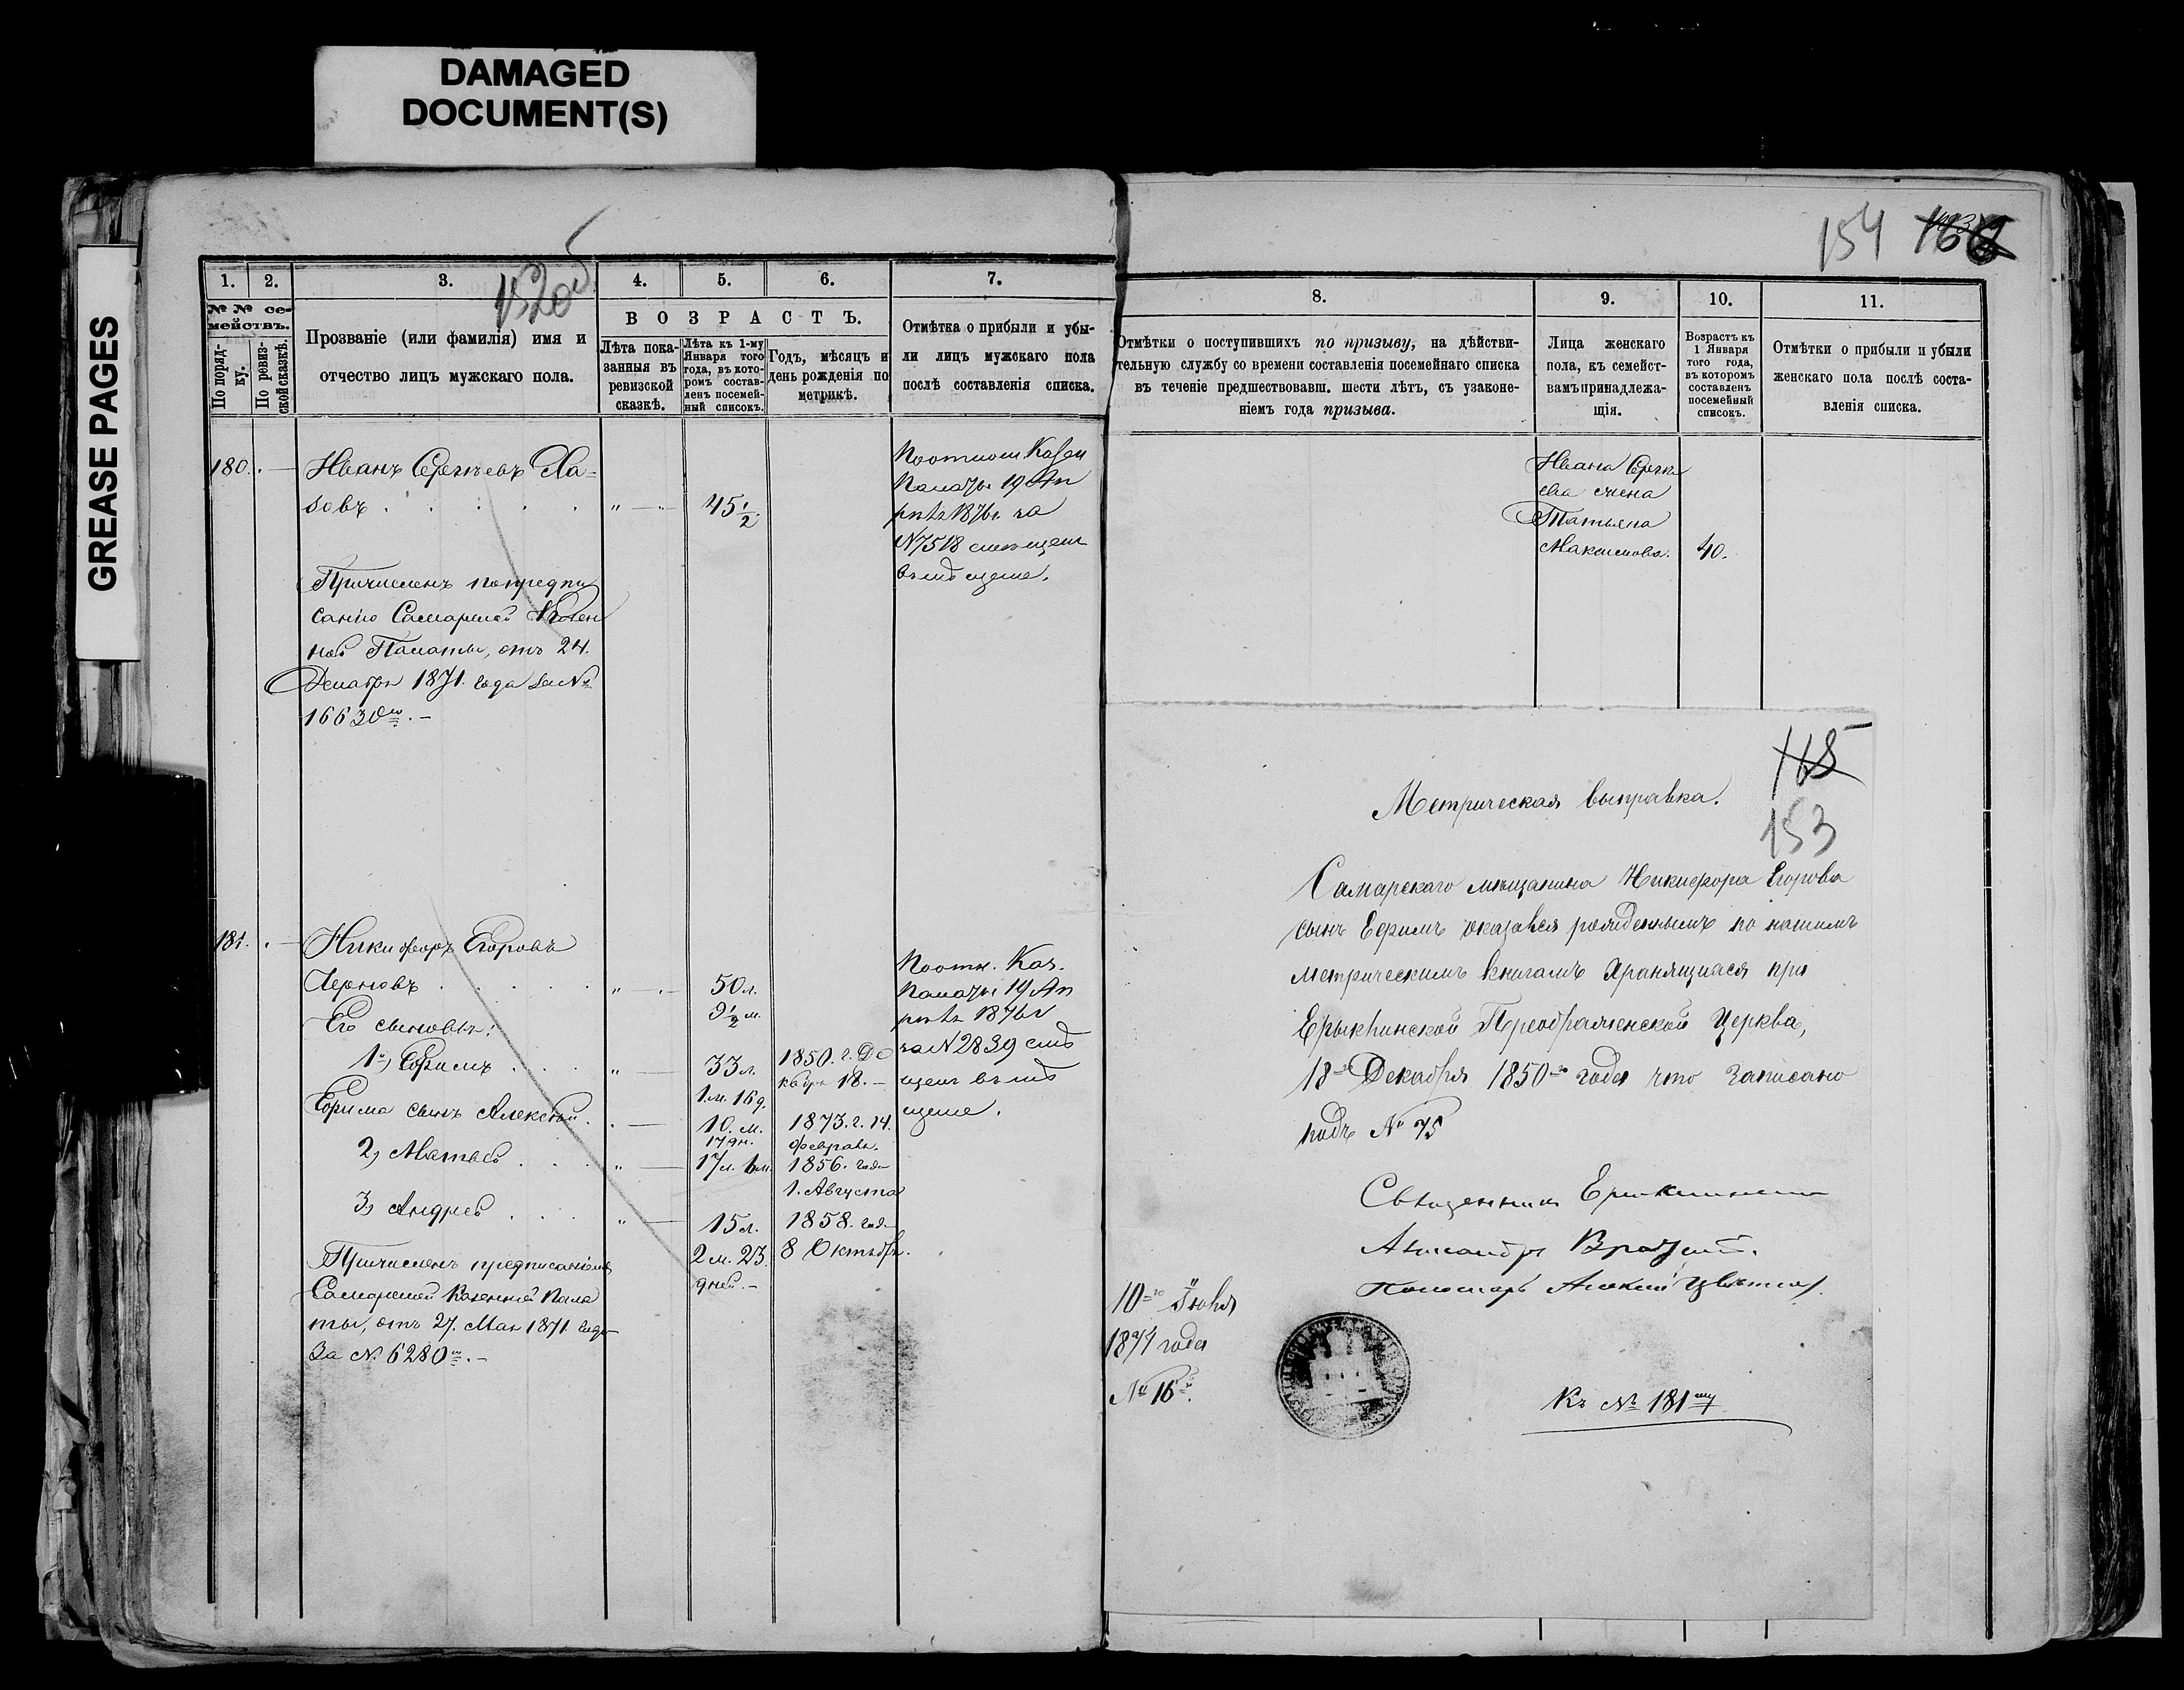 DAMAGED
DOCUMENT(S)
GREASE PAGES
152об
1.
2.
3.
4.
5.
6.
7.
№№ се-
мействъ.
По поряд-
ку.
По ревиз-
ской сказкѣ.
Прозваніе (или фамилія) имя и
отчество лицъ мужскаго пола.
ВОЗРАСТЪ.
Лѣта пока-
занныя въ
ревизской
сказкѣ.
Лѣта къ 1-му
Января того
года, въ кото-
ромъ состав-
ленъ посемей-
ный списокъ.
Годъ, мѣсяцъ и
день рожденія по
метрикѣ.
Отмѣтка о прибыли и убы-
ли лицъ мужскаго пола
послѣ составленія списка.
180.
Иванъ Сергѣевъ Ха=
зовъ
45 1/2
Причисленъ по предпи
санію Самарской Казен
ной Палаты, отъ 24.
Декабря 1871. года за №
16630м.–
Казен
Палаты 19 Ап
1876г. за
№7518
181.
Никифоръ Егоровъ
50 л.
9 1/2 м.
Его сыновья:
1) Ефимъ
33 л.
1 м. 16 д.
1850. г. Де
кабря 18.–
Ефима сынъ Алексѣй.
10. м.
17 дн.
1873. г. 14.
Февраля.
2) Матвѣй
17 л.
1856. года
1. Августа
3) Андрей
15 л.
2 м. 23.
дней.–
1858. года
8 Октября.
Причисленъ предписаніемъ
Самарской Казенной Пала
ты, отъ 27. Мая 1871. года
За № 6280м.–
Каз.
Палаты 19 Ап
1876г
за №2839
154
8.
9.
10.
11.
Отмѣтки о поступившихъ по призыву, на дѣйстви-
тельную службу со времени составленія посемейнаго списка
въ теченіе предшествовавш. шести лѣтъ, съ узаконе-
ніемъ года призыва.
Лица женскаго
пола, къ семейст-
вамъ принадлежа-
щія.
Возрастъ къ
1 Января
того года,
въ которомъ
составленъ
посемейный
списокъ.
Отмѣтки о прибыли и убыли
женскаго пола послѣ соста-
вленія списка.
Ивана Сергѣ
ева жена
Татьяна
Максимова.
40.
165
153
Метрическая выправка.
Самарскаго мѣщанина Никифора Егорова
сынъ Ефимъ оказался рожденнымъ по нашимъ
метрическимъ книгамъ хранящиася при
Ерыклинской Преображенской Церква,
18го Декабря 1850го года что записано
подъ № 75
Священникъ
Александръ
Пономарь Алексѣй Цвѣтков
10го Іюля
1874 года
№ 16й.
Къ № 181му